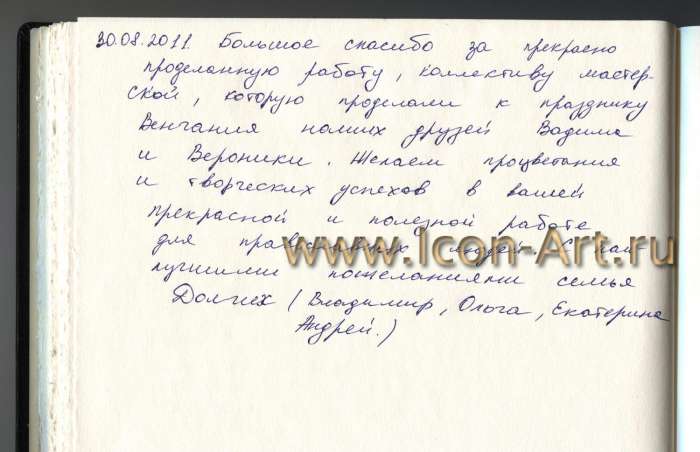 30.08.2011. Большое спасибо за прекрасно
проделанную работу, коллективу мастер-
ской, которую проделали к празднику
Венчания наших друзей Вадима
и Вероники. Желаем процветания
и творческих успехов в вашей
прекрасной и полезной работе
для православных людей. С
www.Icon-Art.ru
лучшими пожеланиями семья
Долгих (Владимир, Ольга, Екатерина
Андрей.)